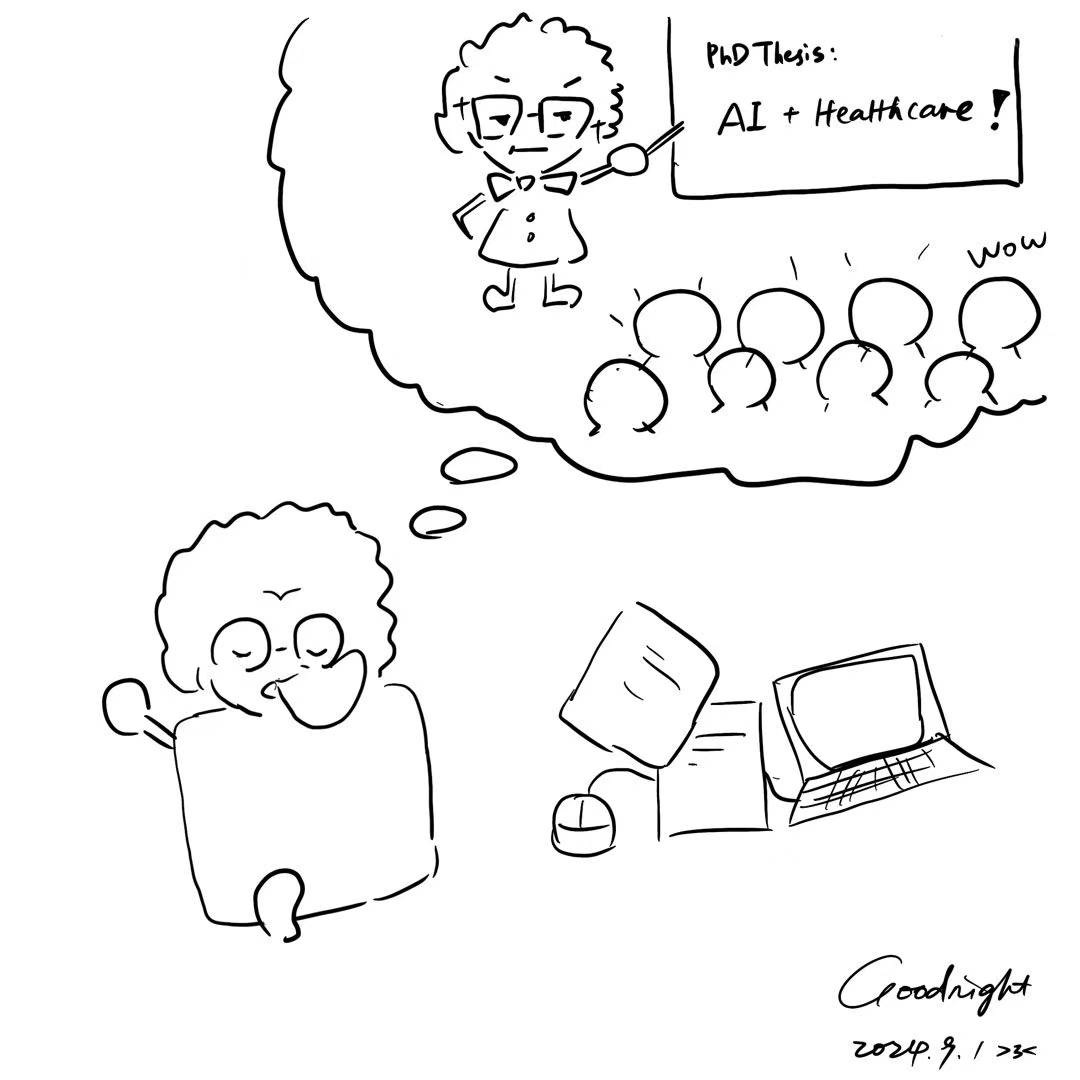 PhD Thesis:
AI + Healthcare!
WOW
Goodnight
2024.9.1 >3<